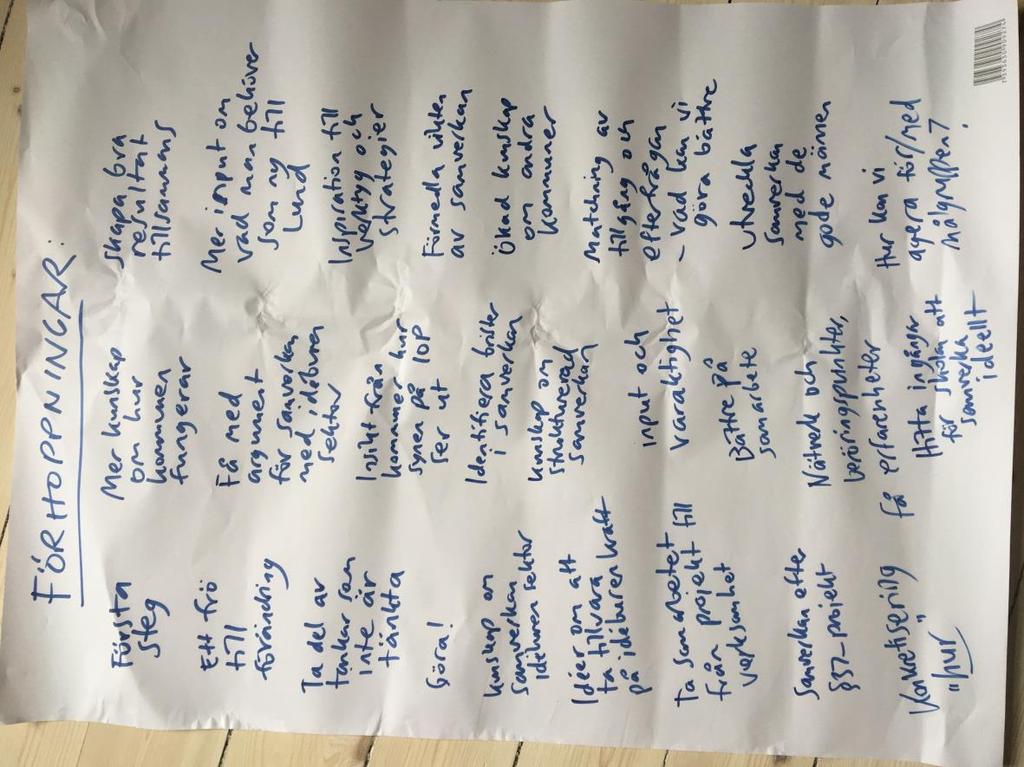 FÖRHOPPNINGAR:
Första
steg
Ett frö
till
förändring
Ta del av
tankar som
inte är
tänkta
Göra!
kunskap om
samverkan
idéburen sektor
Idéer om att
ta tillvara
på idéburen kraft
Ta samarbetet
från projekt till
verksamhet
Samverkan efter
§37-projekt
Konkretisering
"hur"
Mer kunskap
om hur
kommunen
fungerar
Få med
argument
för samverkan
med idéburen
sektor
Insikt från
kommuner hur
synen på IOP
ser ut
Identifiera brister
i samverkan
kunskap om
strukturerad
samverkan
input och
varaktighet
Bättre på
samarbete
Nätverk och
beröringspunkter,
få erfarenheter
Hitta ingångar
för skolan att
samverka
ideellt
skapa bra
resultat
tillsammans
Mer input om
vad man behöver
som ny till
Lund
Inspiration till
verktyg och
strategier
Förmedla vikten
av samverkan
Ökad kunskap
om andra
kommuner
Matchning av
tillgång och
efterfrågan
- vad kan vi
göra bättre
utveckla
samverkan
med de
gode männen
Hur kan vi
agera för/med
målgruppen?